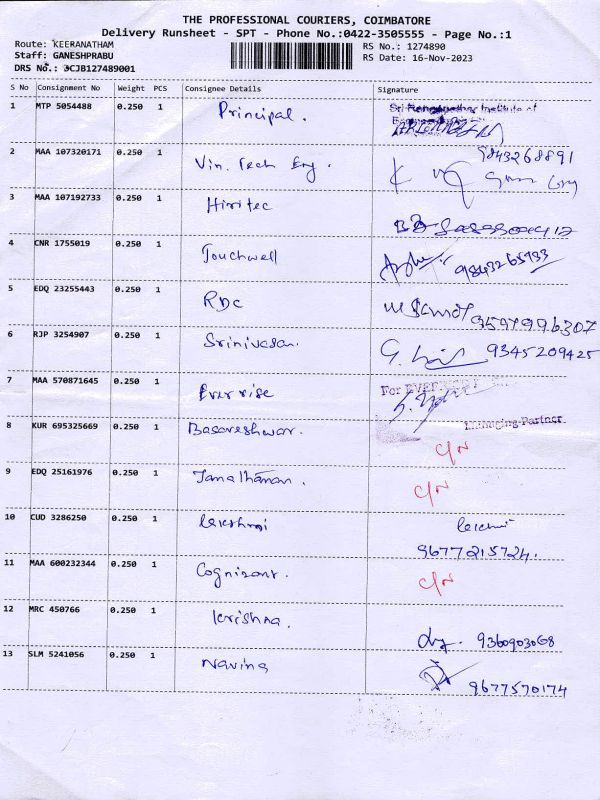 THE PROFESSIONAL COURIERS, COIMBATORE
Delivery Runsheet - SPT - Phone No.:0422-3505555 - Page No.:1
Route: KEERANATHAM
RS No.: 1274890
Staff: GANESHPRABU
RS Date: 16-Nov-2023
DRS No.: 3CJB127489001
S No Consignment No Weight PCS Consignee Details Signature
1 MTP 5054488 0.250 1 Principal.
2 MAA 107320171 0.250 1 Vin. Tech Eng. 9843268891
3 MAA 107192733 0.250 1 Hiritec
4 CNR 1755019 0.250 1 Touchwell
5 EDQ 23255443 0.250 1 RDC
6 RJP 3254907 0.250 1 Srinivasan. 9345209425
7 MAA 570871645 0.250 1 Ever rise
Managing Partner
8 KUR 695325669 0.250 1 Basareshwar. C/N
9 EDQ 25161976 0.250 1 C/N
10 CUD 3286250 0.250 1 lakshmi
9677215724.
11 MAA 600232344 0.250 1 Cognizant. C/N
12 MRC 450766 0.250 1 krishna. 9360903068
13 SLM 5241056 0.250 1 Navina 9677570174